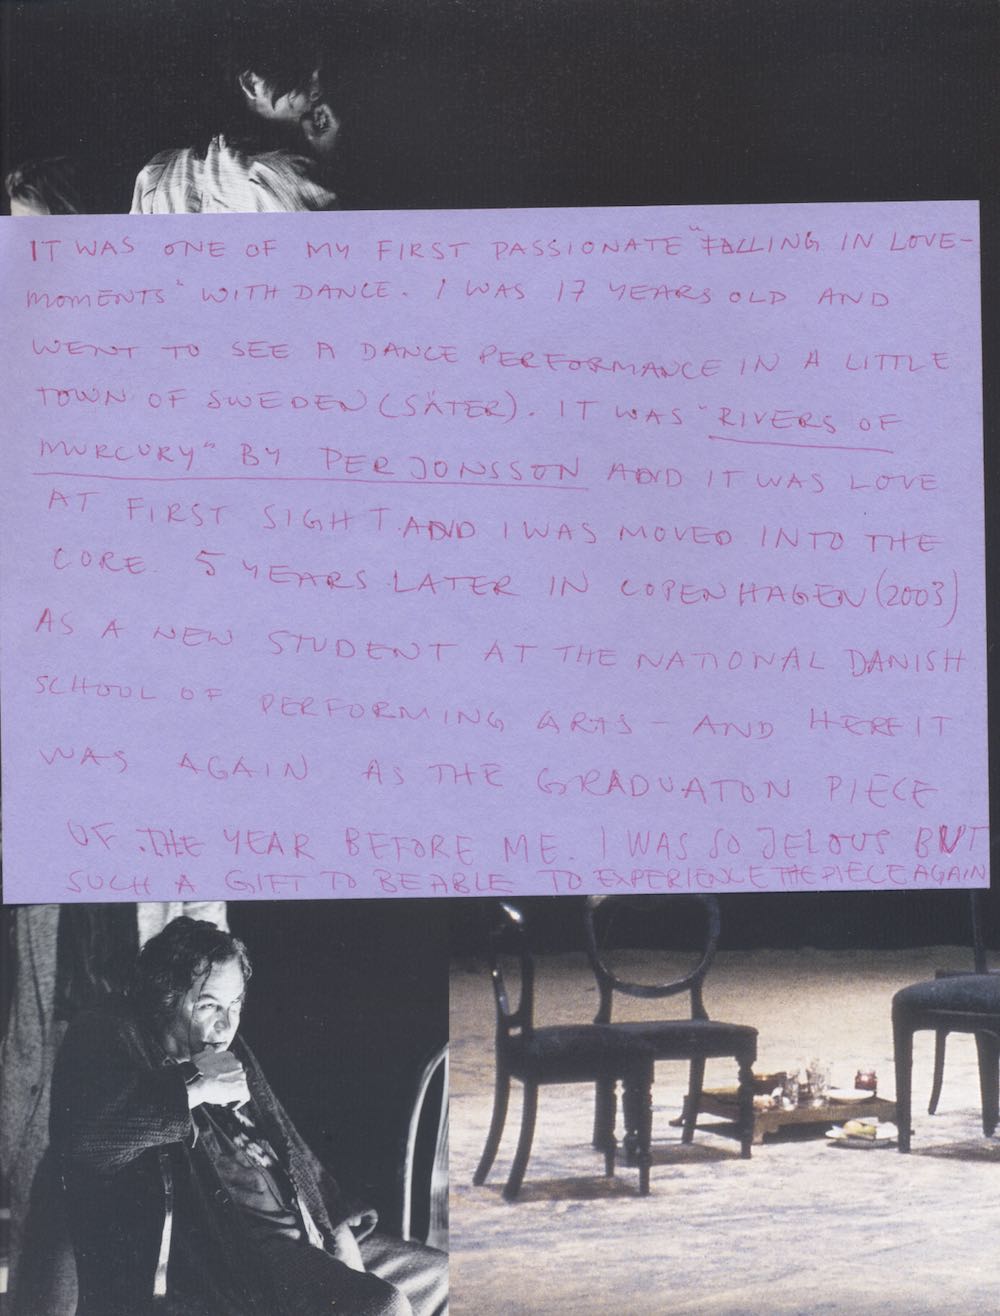 IT WAS ONE OF MY FIRST PASSIONATE "FALLING IN LOVE-
MOMENTS" WITH DANCE. I WAS 17 YEARS OLD AND
WENT TO SEE A DANCE PERFORMANCE IN A LITTLE
TOWN OF SWEDEN (SÄTER). IT WAS "RIVERS OF
MURCURY" BY PER JONSSON AND IT WAS LOVE
AT FIRST SIGHT. AND I WAS MOVED INTO THE
CORE. 5 YEARS LATER IN COPENHAGEN (2003)
AS A NEW STUDENT AT THE NATIONAL DANISH
SCHOOL OF PERFORMING ARTS - AND HERE IT
WAS AGAIN AS THE GRADUATON PIECE
OF THE YEAR BEFORE ME. I WAS SO JELOUS BUT
SUCH A GIFT TO BE ABLE TO EXPERIENCE THE PIECE AGAIN